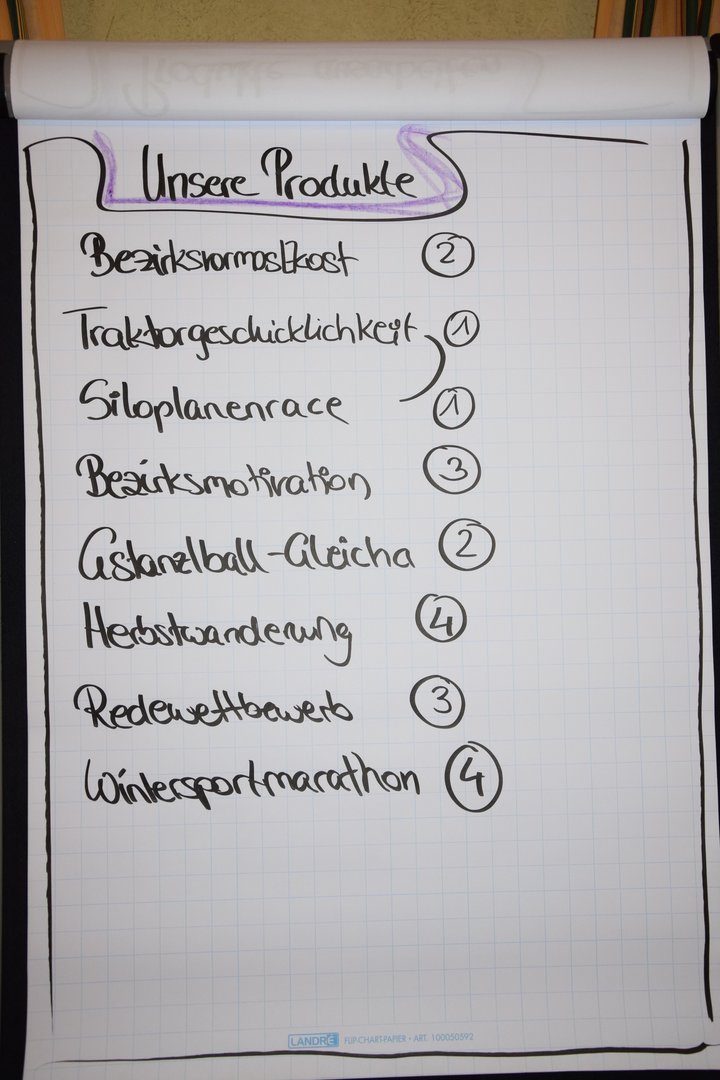 Unsere Produkte
Bezirksvormostkost 2
Traktorgeschicklichkeit 1
Siloplanenrace 1
Bezirksmotivation 3
Gstanzlball-Gleicha 2
Herbstwanderung 4
Redewettbewerb 3
Wintersportmarathon 4
LANDRÉ FLIP-CHART-PAPIER • ART. 100050592